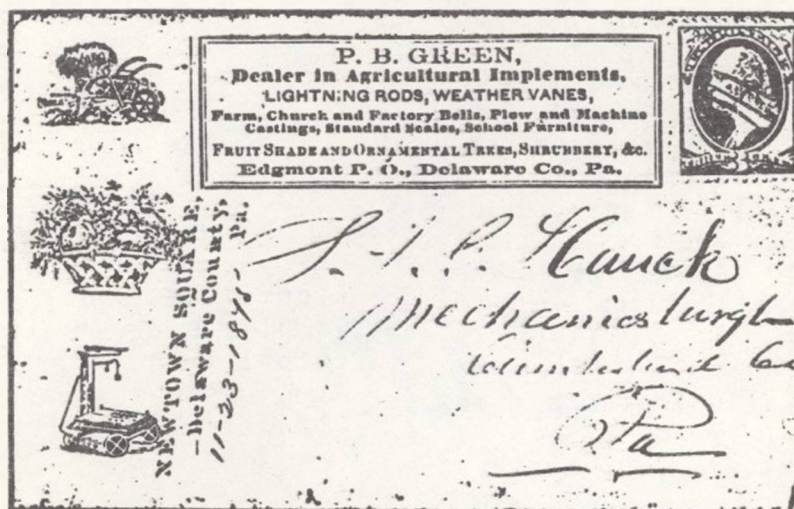 P. B. GREEN,
Dealer in Agricultural Implements,
LIGHTNING RODS, WEATHER VANES,
Farm, Church and Factory Bells, Plow and Machine
Castings, Standard Scales, School Furniture,
FRUIT SHADE AND ORNAMENTAL TREES, SHRUBBERY, &c.
Edgmont P. O., Delaware Co., Pa.
3
NEWTOWN SQUARE,
-Delaware County,
Pa.
Hauck
Mechanicsburgh
Cumberland Co
Pa